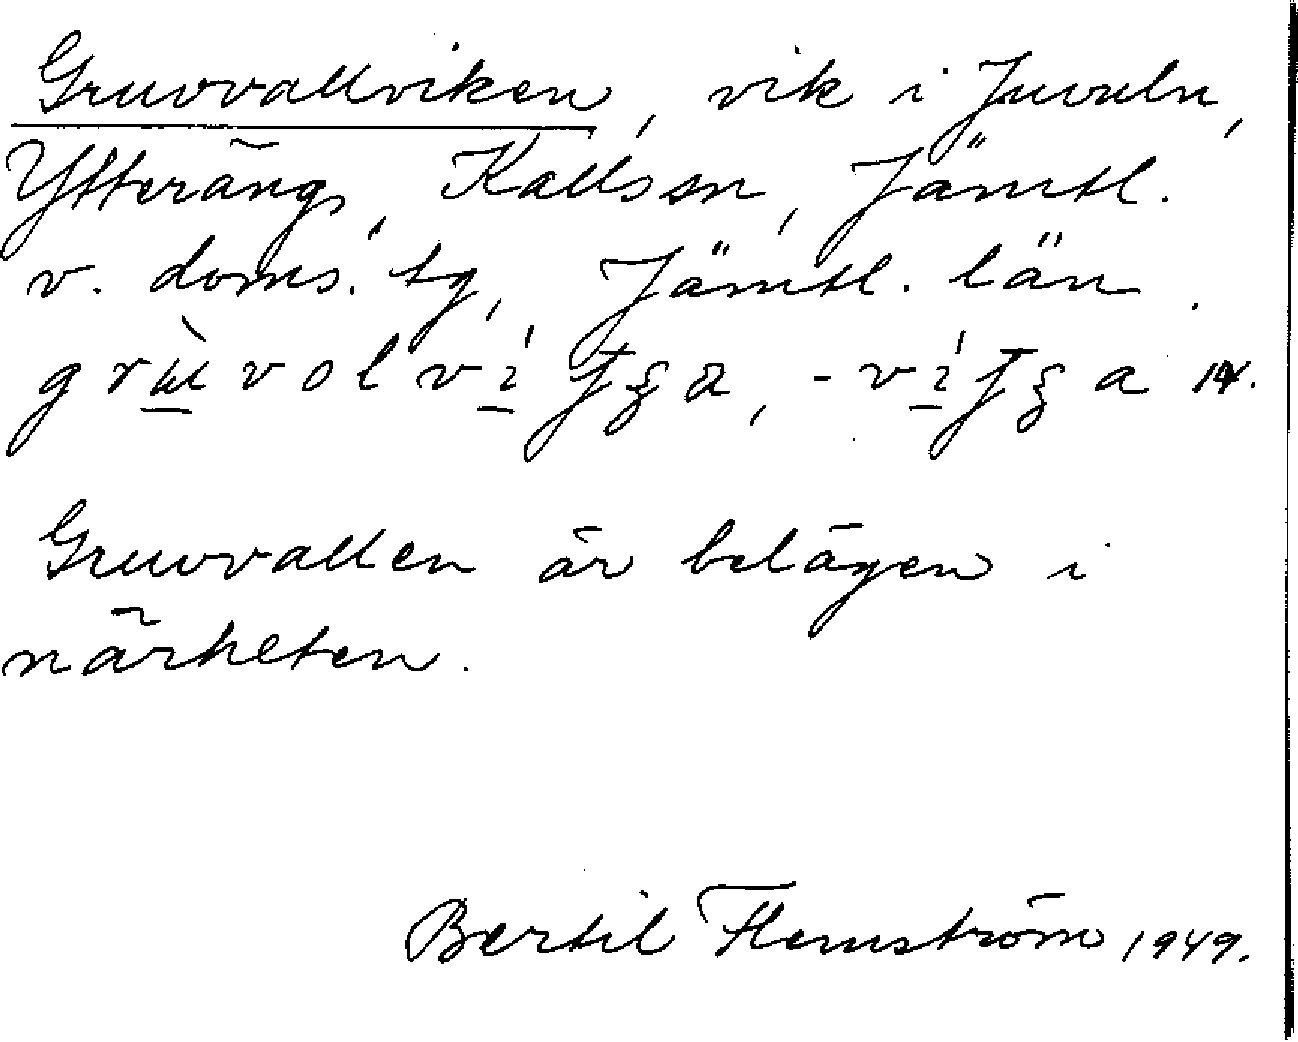 Gruvvallviken, vik i Juvuln,
Ytteräng, Kall sn, Jämtl.
v. doms. tg, Jämtl. län.
Gruvvallen är belägen i
närheten.
Bertil Flemström 1949.